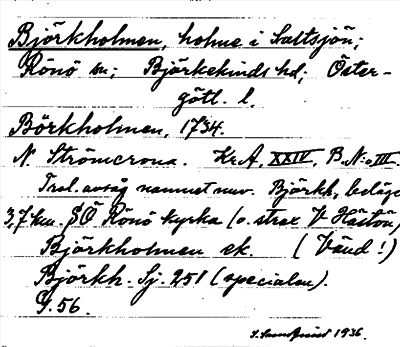 Björkholmen, holme i Saltsjön;
Rönö sn; Björkekinds hd; Öster-
götl. l.
Börkholmen, 1734.
N. Strömcrona. Kr.A. XXIV, B. N:o III.
Trol. avsåg namnet nuv. Björkh., beläge
3,7 km. SÖ Rönö kyrka (o. strax V Håskö)
Björkholmen ek. (Vänd!)
Björkh. Sj. 251 (specialen).
G. 56.
1936.